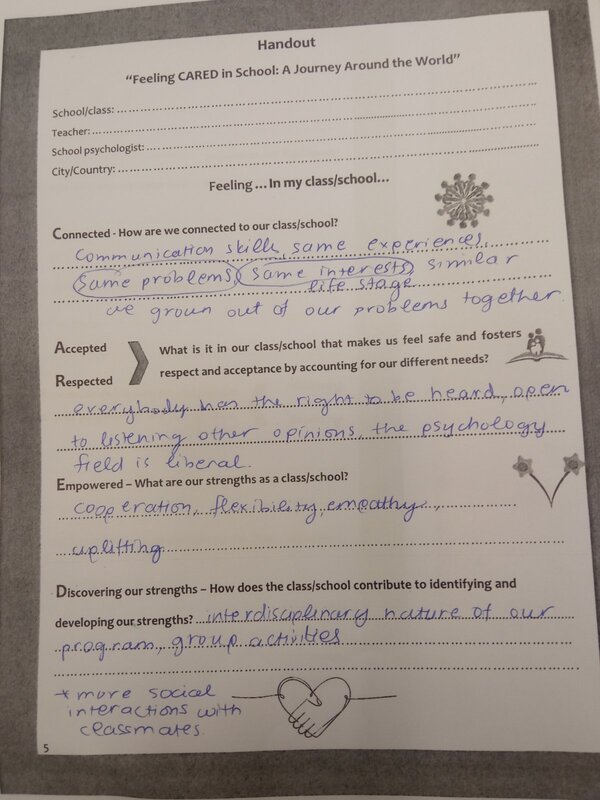 Handout
"Feeling CARED in School: A Journey Around the World"
School/class:
Teacher:
School psychologist:
City/Country:
Feeling ... In my class/school...
Connected - How are we connected to our class/school?
Communication skills, same experiences,
same problems, same interests, similar
life stage
we grown out of our problems together.
Accepted
Respected
What is it in our class/school that makes us feel safe and fosters
respect and acceptance by accounting for our different needs?
everybody has the right to be heard, open
to listening other opinions, the psychology
field is liberal.
Empowered – What are our strengths as a class/school?
cooperation, flexibility, empathy,
uplifting
Discovering our strengths – How does the class/school contribute to identifying and
developing our strengths? interdisciplinary nature of our
program, group activities
* more social
interactions with
classmates.
5